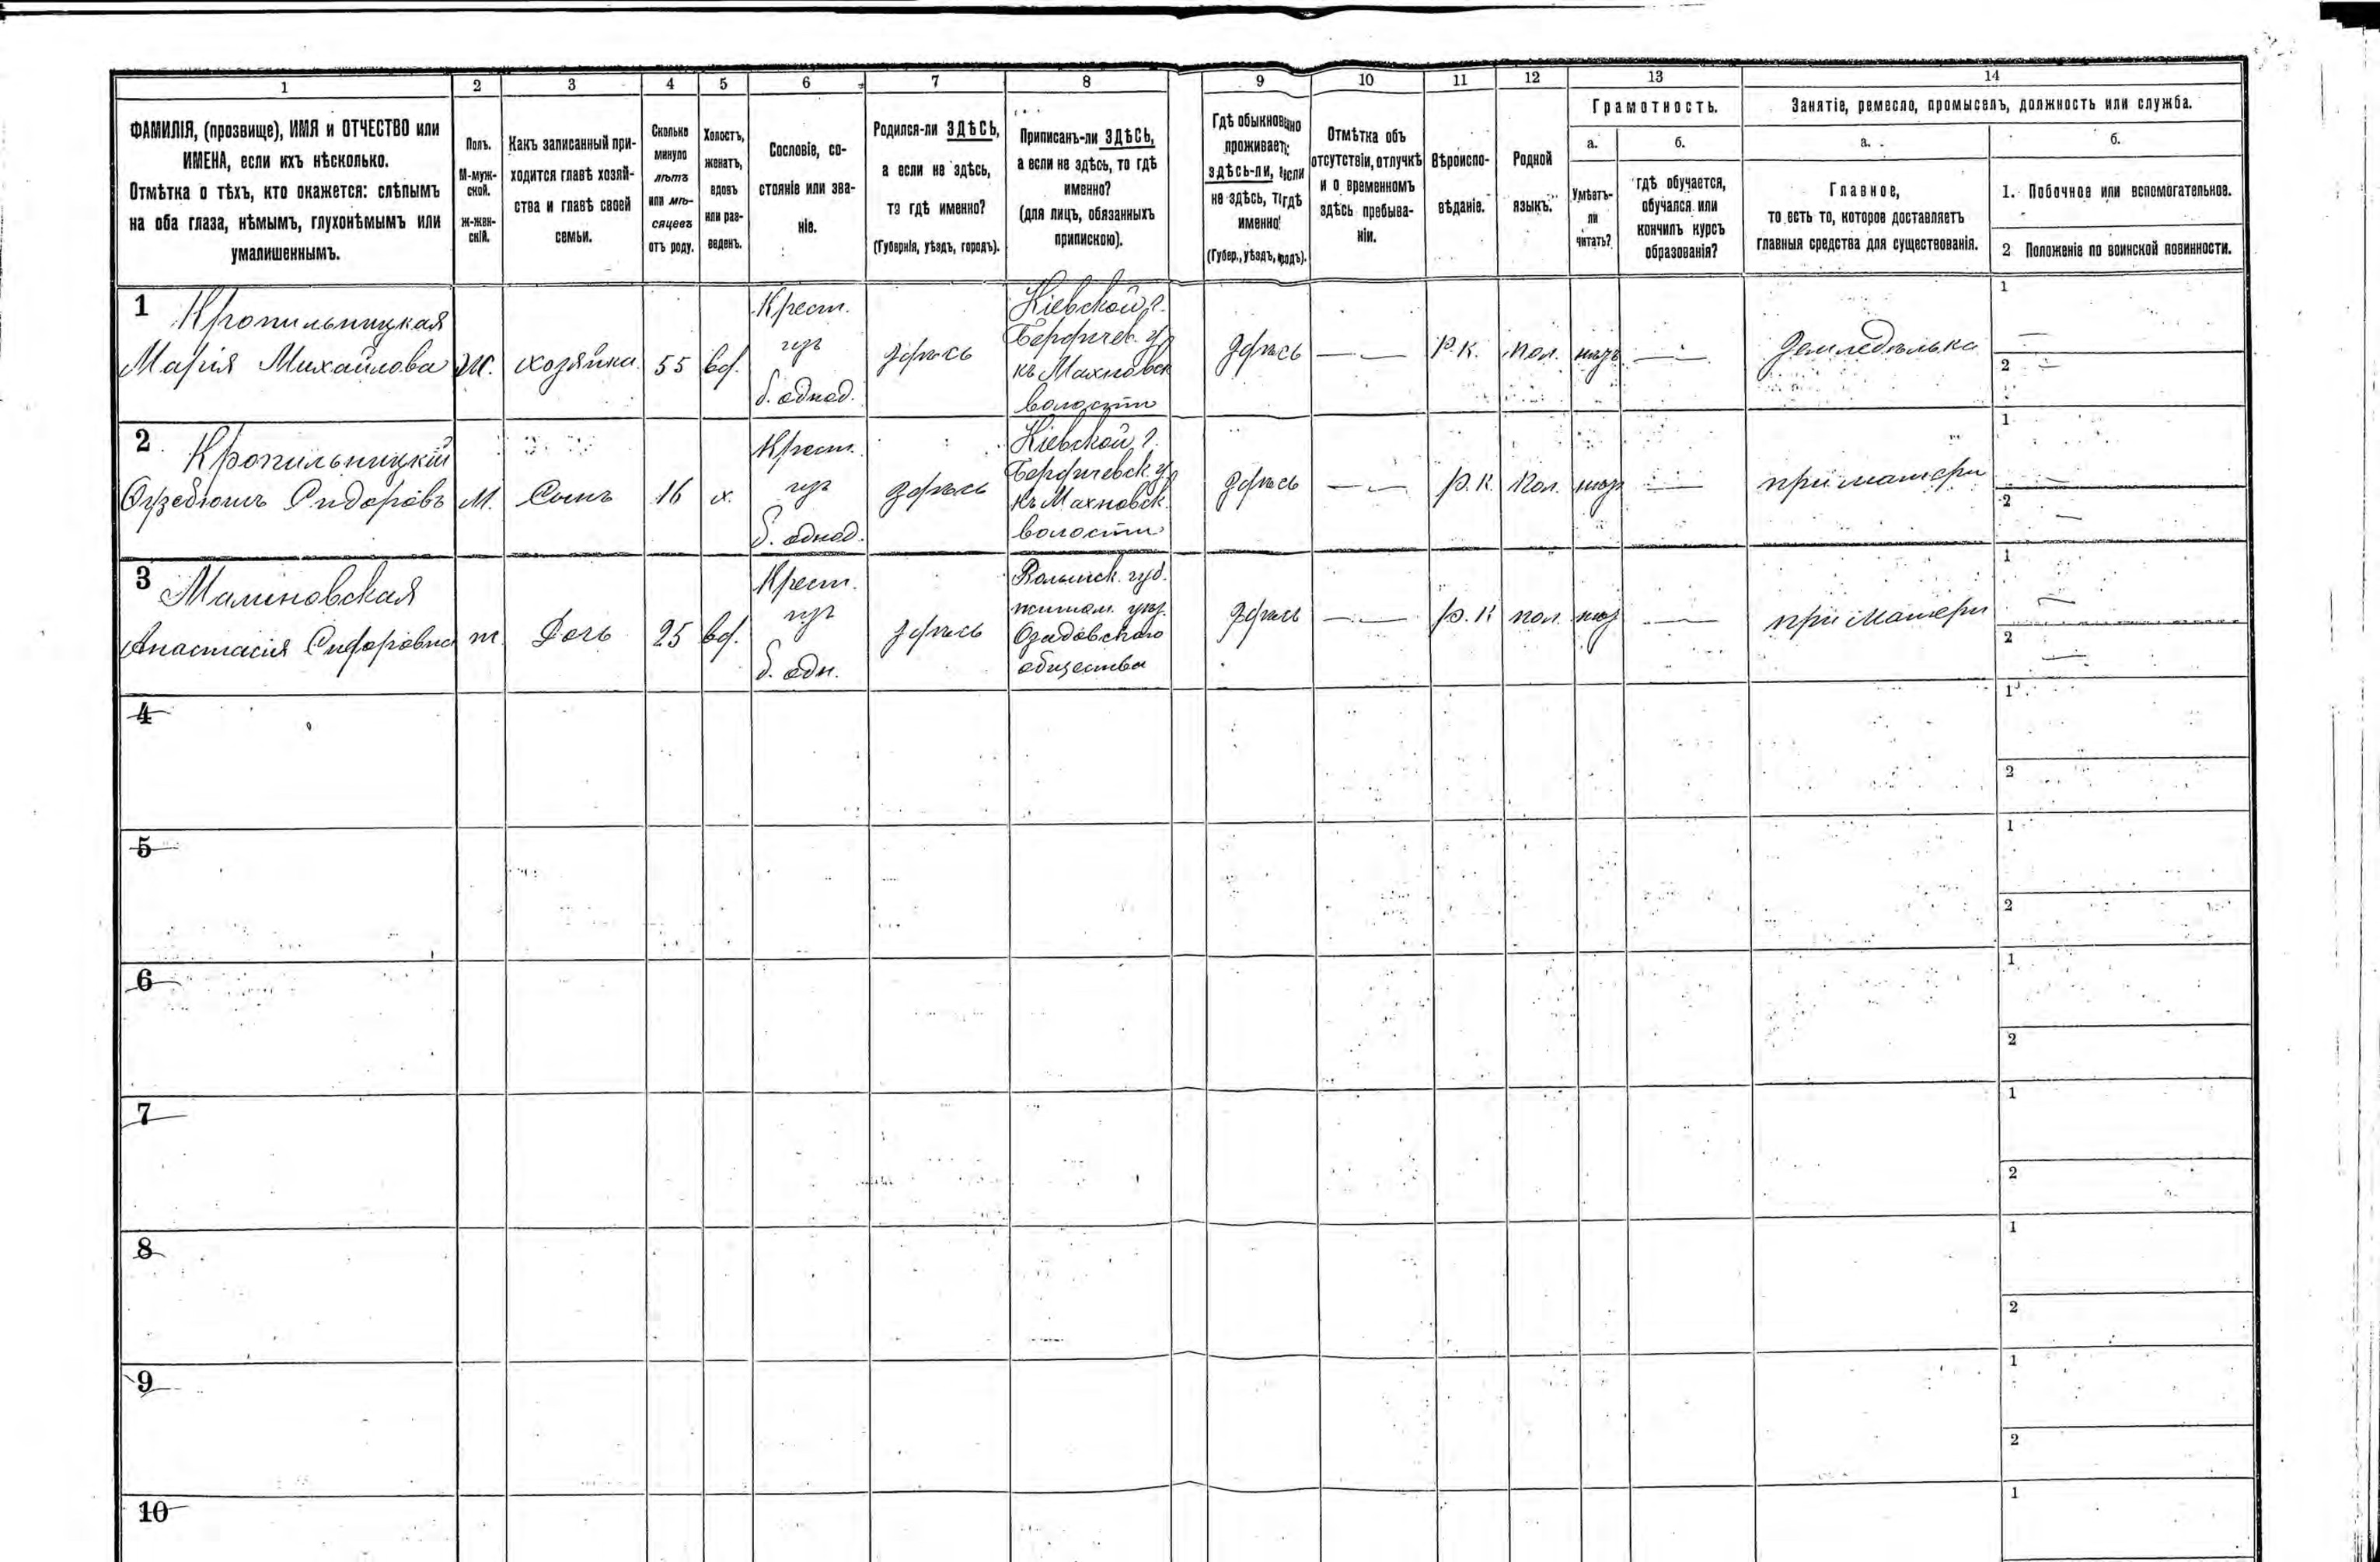 1 2 3 4 5 6 7 8 9 10 11 12 13 14
ФАМИЛІЯ, (прозвище), ИМЯ и ОТЧЕСТВО или
ИМЕНА, если ихъ нѣсколько.
Отмѣтка о тѣхъ, кто окажется: слѣпымъ
на оба глаза, нѣмымъ, глухонѣмымъ или
умалишеннымъ.
Полъ.
М-муж-
ской.
Ж-жен-
скій.
Какъ записанный при-
ходится главѣ хозяй-
ства и главѣ своей
семьи.
Сколько
минуло
лѣтъ
или мѣ-
сяцевъ
отъ роду.
Холостъ,
женатъ,
вдовъ
или раз-
веденъ.
Сословіе, со-
стояніе или зва-
ніе.
Родился-ли ЗДѢСЬ,
а если не здѣсь,
то гдѣ именно?
(Губернія, уѣздъ, городъ).
Приписанъ-ли ЗДѢСЬ,
а если не здѣсь, то гдѣ
именно?
(для лицъ, обязанныхъ
припискою).
Гдѣ обыкновенно
проживаетъ:
здѣсь-ли, если
не здѣсь, то гдѣ
именно?
(Губер., уѣздъ, городъ).
Отмѣтка объ
отсутствіи, отлучкѣ
и о временномъ
здѣсь пребыва-
ніи.
Вѣроиспо-
вѣданіе.
Родной
языкъ.
Грамотность.
а.
Умѣетъ-
ли
читать?
б.
гдѣ обучается,
обучался или
кончилъ курсъ
образованія?
Занятіе, ремесло, промыселъ, должность или служба.
а.
Главное,
то есть то, которое доставляетъ
главныя средства для существованія.
б.
1. Побочное или вспомогательное.
2 Положеніе по воинской повинности.
1 Кропильницкая
Марія Михайлова
Ж.
хозяйка
55
вд.
Крест.
изъ
б. однод.
здѣсь
Кіевской г.
Бердичев. у.
къ Махновск
волости
здѣсь
— —
р.к.
пол.
нѣтъ
—
земледѣлька
1 —
2 —
2 Кропильницкій
Сидоровъ
М.
Сынъ
16
х.
Крест.
изъ
б. однод.
здѣсь
Кіевской г.
Бердичевск у.
къ Махновск.
волости
здѣсь
— —
р.к.
пол.
нѣтъ
—
при матери
1 —
2 —
3 Малиновская
Анастасія Сидоровна
ж.
Дочь
25
вд.
Крест.
изъ
б. одн.
здѣсь
Волынск. губ.
житом. уѣз.
Озадовского
общества
здѣсь
— —
р.к
пол.
нѣт
—
при матери
1 —
2 —
4
1
2
5
1
2
6
1
2
7
1
2
8
1
2
9
1
2
10
1